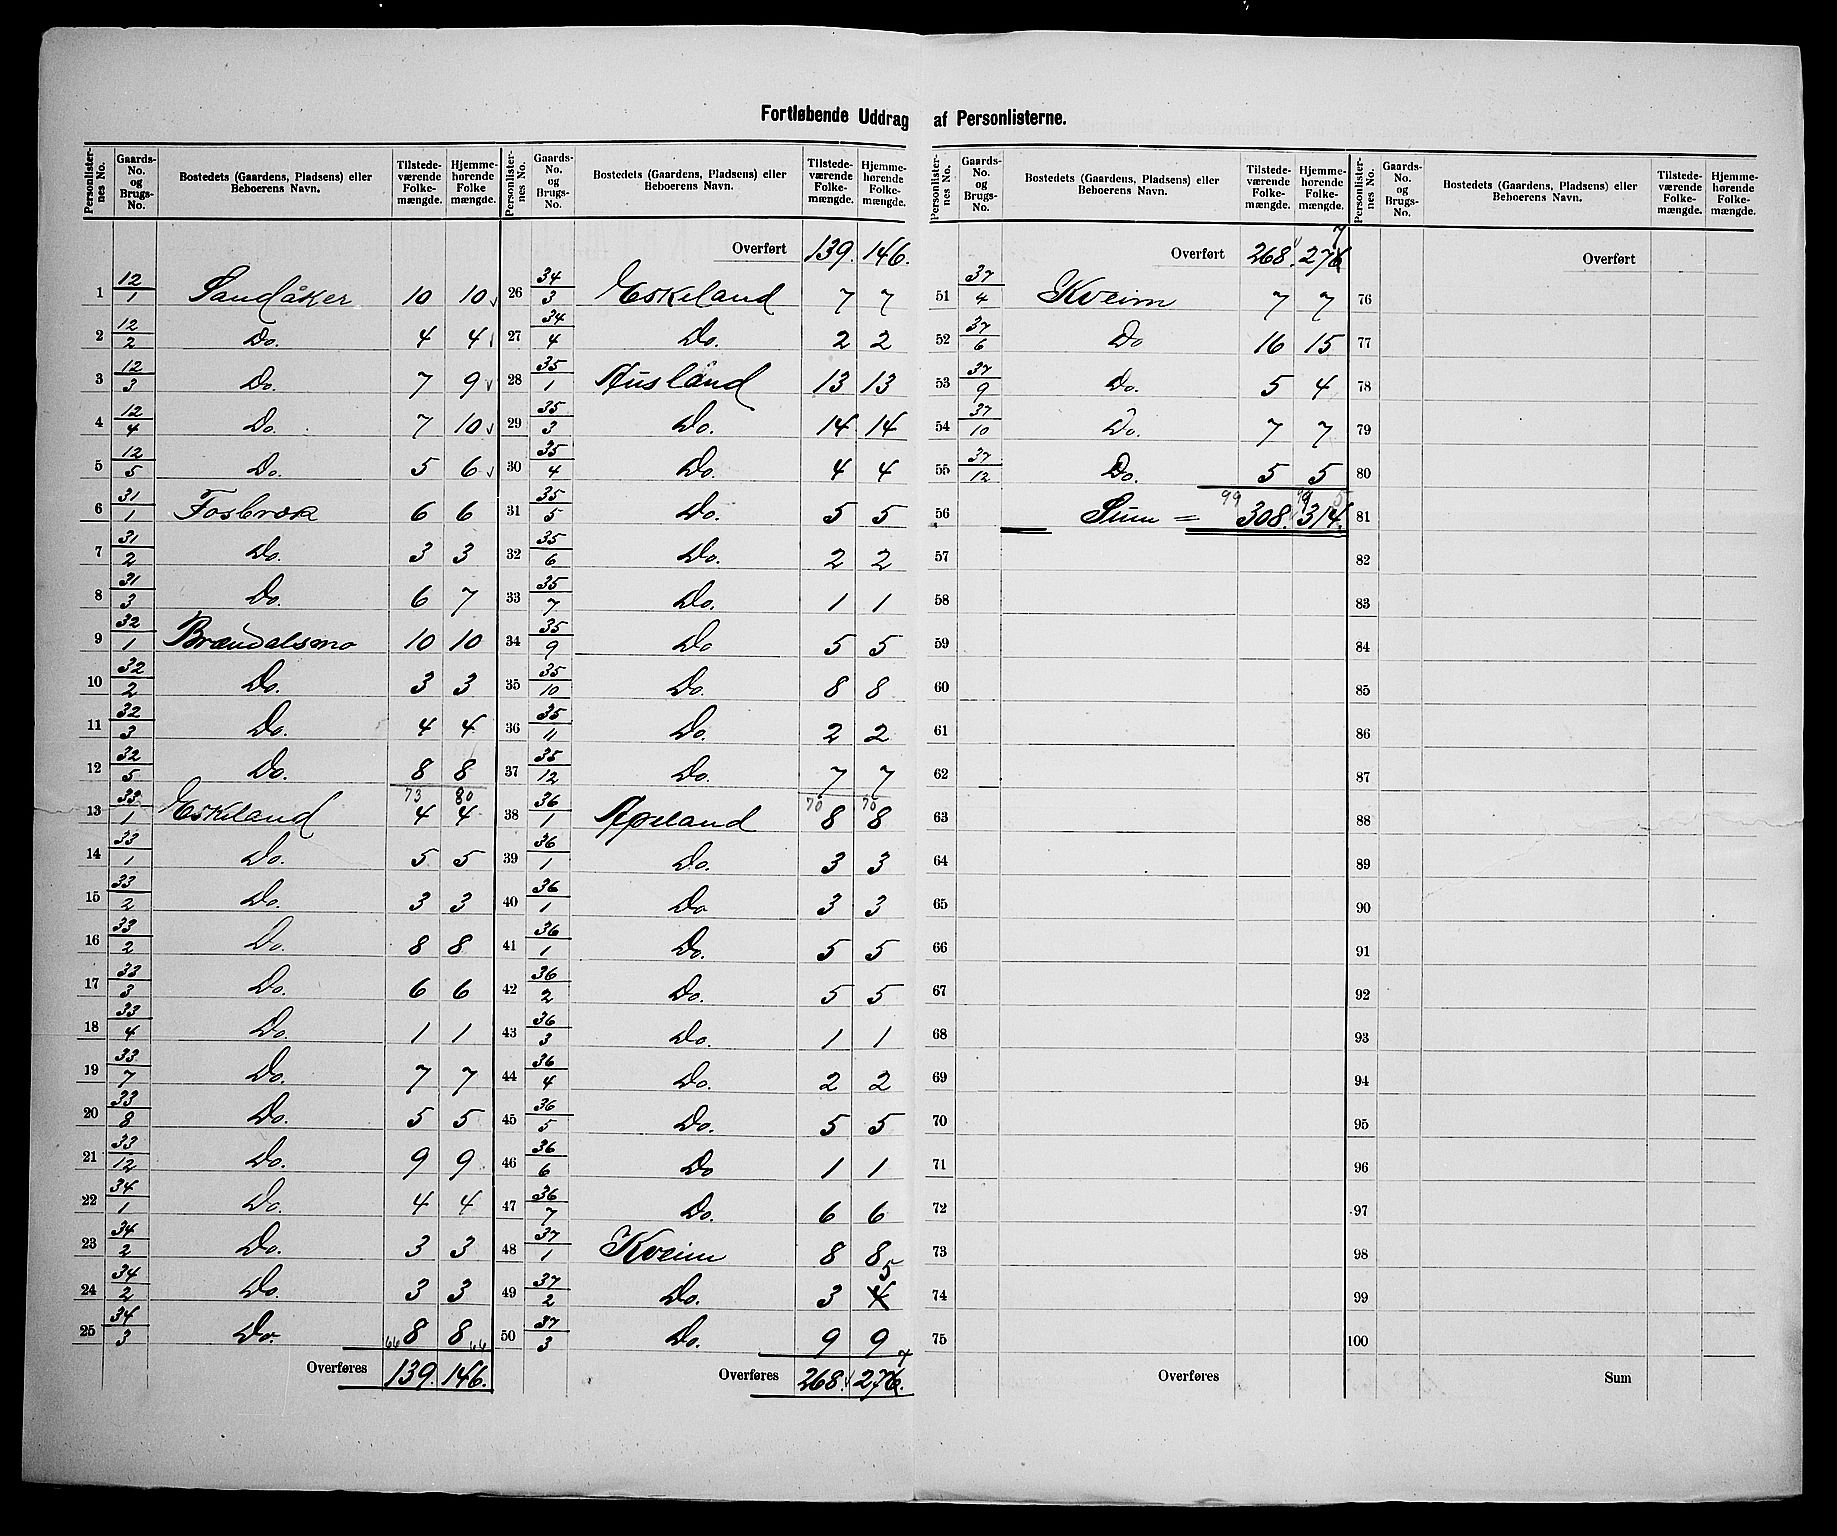 Fortløbende Uddrag af Personlisterne.
Personlister-nes No. | Gaards-No. og Brugs-No. | Bostedets (Gaardens, Pladsens) eller Beboerens Navn. | Tilstede-værende Folke-mængde. | Hjemme-hørende Folke mængde.
1 12/1 Sandåker 10 10
2 12/2 Do. 4 4
3 12/3 Do. 7 9
4 12/4 Do. 7 10
5 12/5 Do. 5 6
6 31/1 Fosbræk 6 6
7 31/2 Do. 3 3
8 31/3 Do. 6 7
9 32/1 Brændalsmo 10 10
10 32/2 Do. 3 3
11 32/3 Do. 4 4
12 32/5 Do. 8 8
73 80
13 33/1 Eskeland 4 4
14 33/1 Do. 5 5
15 33/2 Do. 3 3
16 33/2 Do. 8 8
17 33/3 Do. 6 6
18 33/4 Do. 1 1
19 33/7 Do. 7 7
20 33/8 Do. 5 5
21 33/12 Do. 9 9
22 34/1 Do. 4 4
23 34/2 Do. 3 3
24 34/2 Do. 3 3
25 34/3 Do. 66 8 8 66
Overføres 139. 146.
Personlister-nes No. | Gaards-No. og Brugs-No. | Bostedets (Gaardens, Pladsens) eller Beboerens Navn. | Tilstede-værende Folke-mængde. | Hjemme-hørende Folke-mængde.
Overført 139. 146.
26 34/3 Eskeland 7 7
27 34/4 Do. 2 2
28 35/1 Ausland 13 13
29 35/3 Do. 14 14
30 35/4 Do. 4 4
31 35/5 Do. 5 5
32 35/6 Do. 2 2
33 35/7 Do. 1 1
34 35/9 Do 5 5
35 35/10 Do. 8 8
36 35/11 Do. 2 2
37 35/12 Do. 7 7
70 70
38 36/1 Apeland 8 8
39 36/1 Do. 3 3
40 36/1 Do 3 3
41 36/1 Do. 5 5
42 36/2 Do. 5 5
43 36/3 Do. 1 1
44 36/4 Do. 2 2
45 36/5 Do. 5 5
46 36/6 Do 1 1
47 36/7 Do. 6 6
48 37/1 Kveim 8 8
49 37/2 Do. 3 4 5
50 37/3 Do. 9 9
Overføres 268. 276. 7
Personlister-nes No. | Gaards-No. og Brugs-No. | Bostedets (Gaardens, Pladsens) eller Beboerens Navn. | Tilstede-værende Folke-mængde. | Hjemme-hørende Folke-mængde.
Overført 268. 276 7
51 37/4 Kveim 7 7
52 37/6 Do 16 15
53 37/9 Do. 5 4
54 37/10 Do. 7 7
55 37/12 Do. 5 5
99 5
56 Sum = 308. 314.
57
58
59
60
61
62
63
64
65
66
67
68
69
70
71
72
73
74
75
Overføres
Personlister-nes No. | Gaards-No. og Brugs-No. | Bostedets (Gaardens, Pladsens) eller Beboerens Navn. | Tilstede-værende Folke-mængde. | Hjemme-hørende Folke-mængde.
Overført
76
77
78
79
80
81
82
83
84
85
86
87
88
89
90
91
92
93
94
95
96
97
98
99
100
Sum